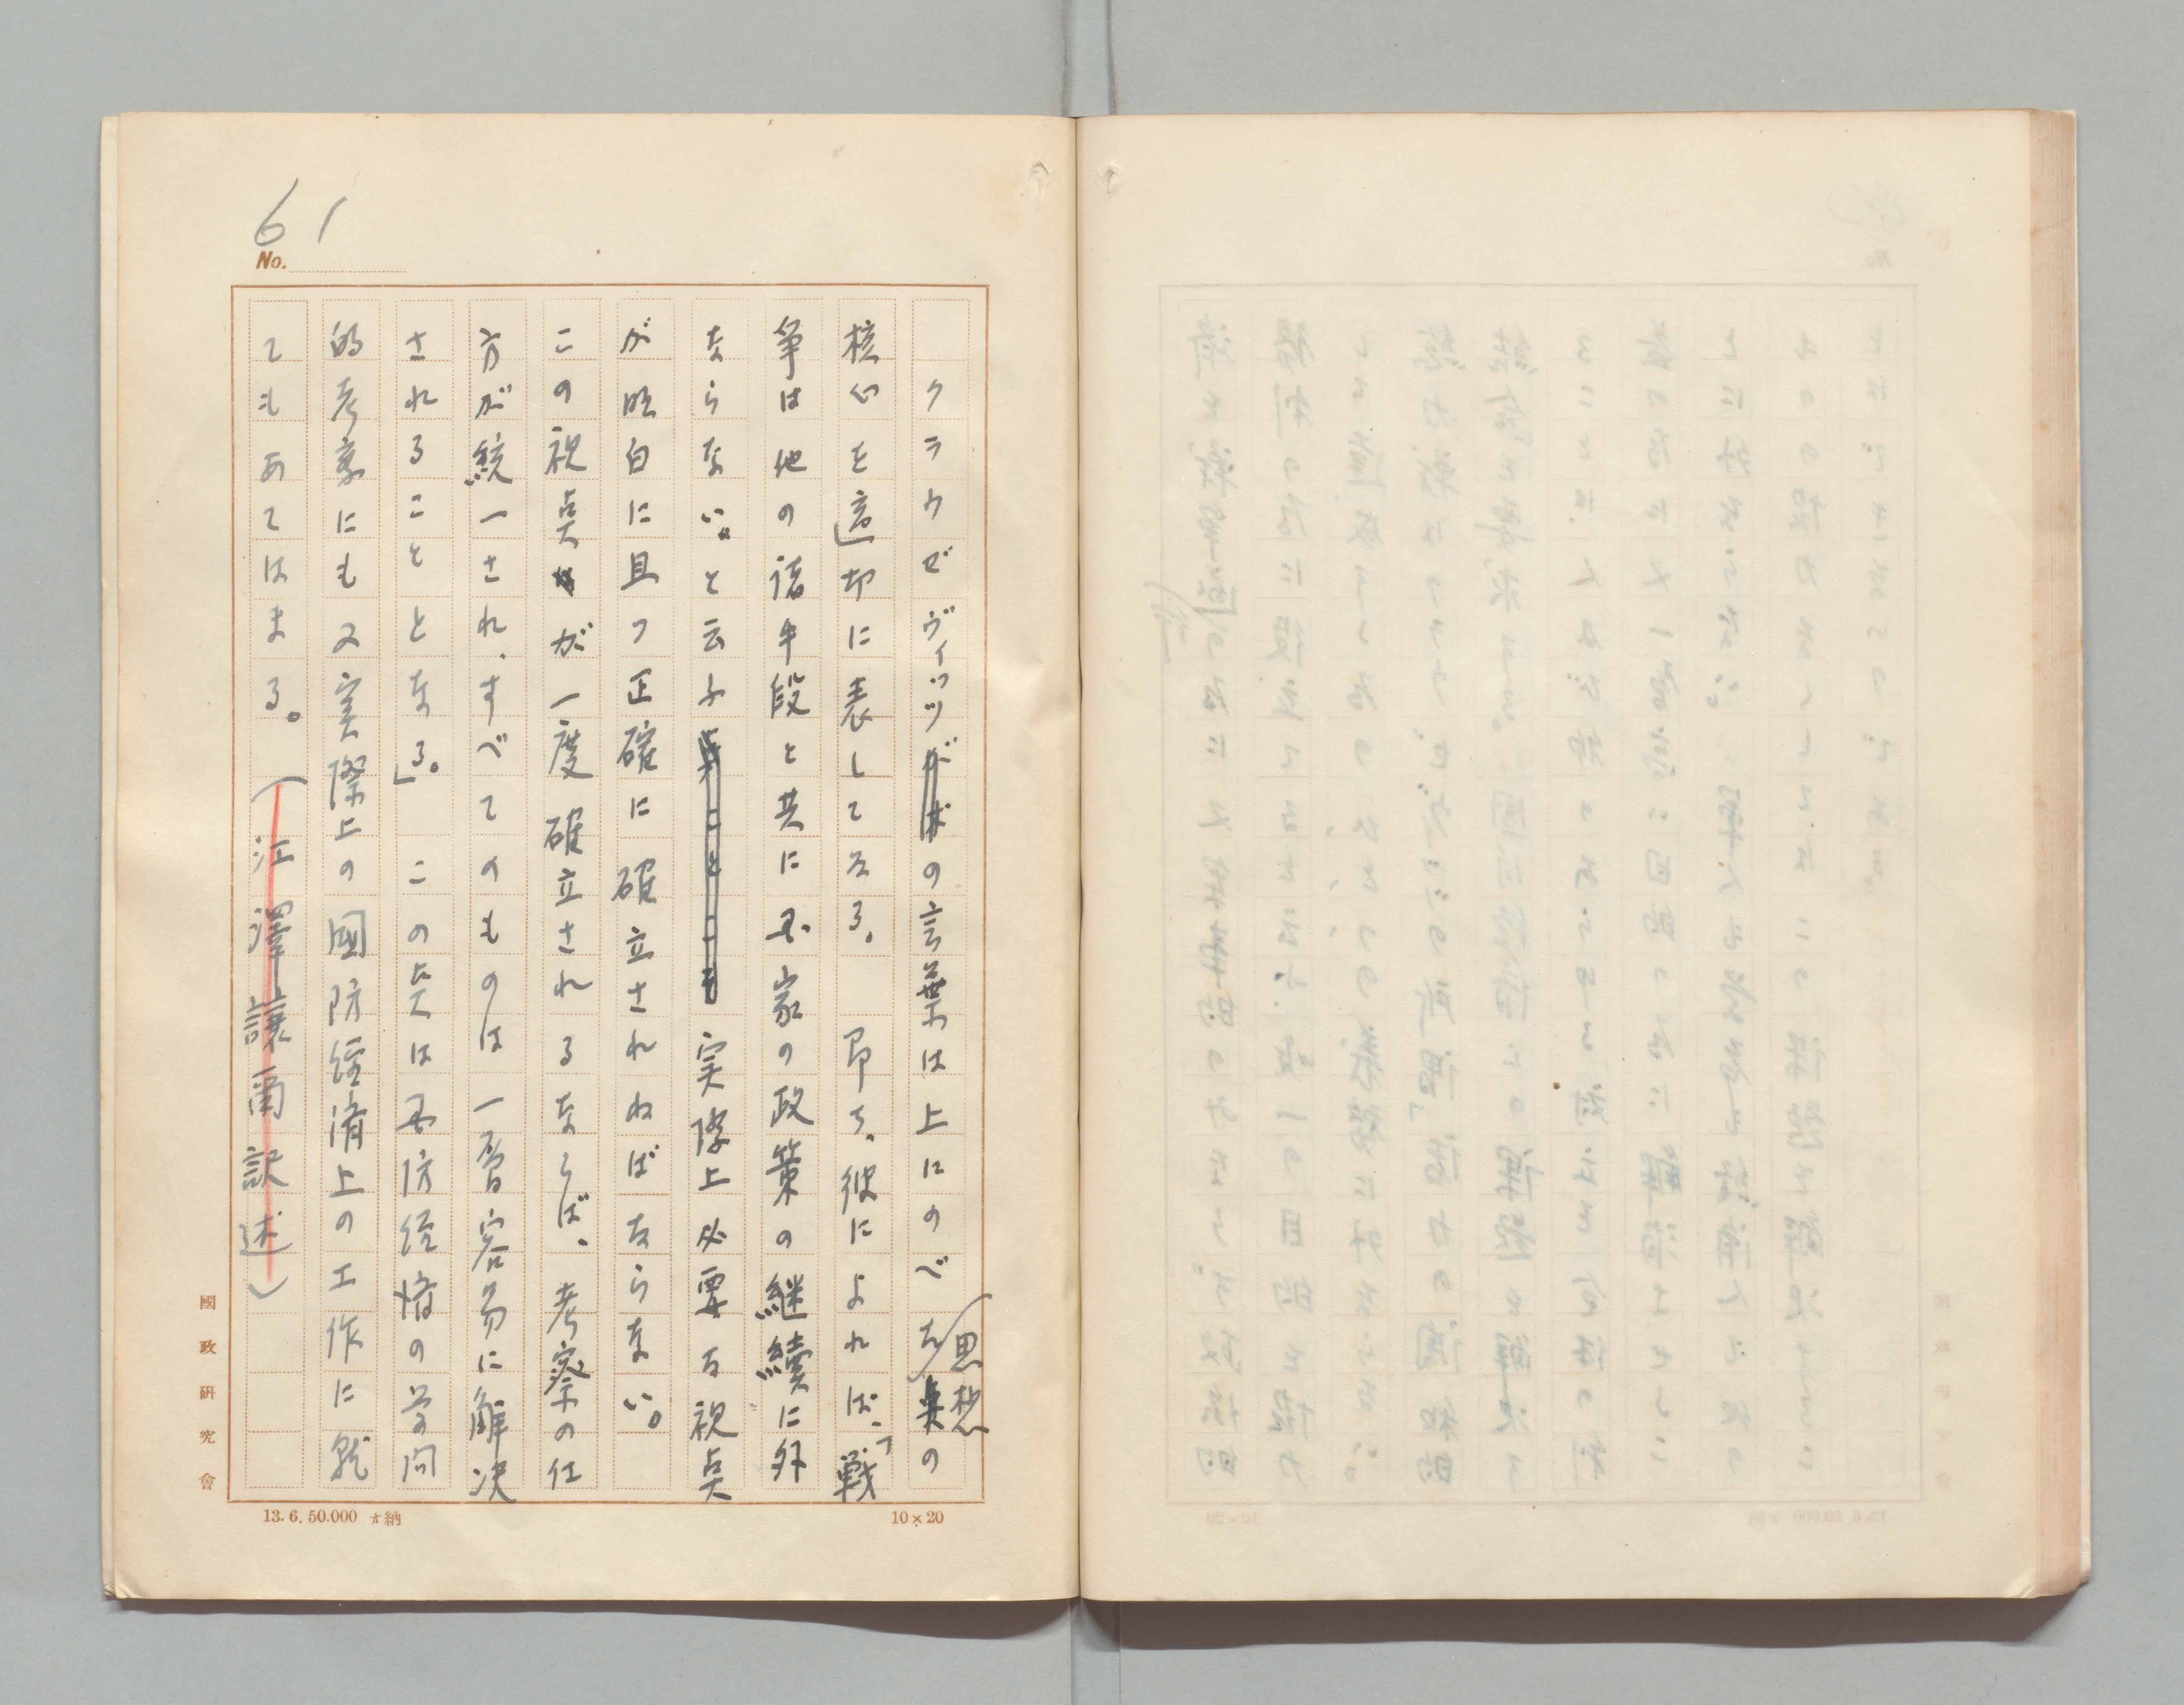 61
No.
クラウゼヴィッツの言葉は上にのべた思想の
核心を適切に表してゐる。 即ち、彼によれば、「戦
争は他の諸手段と共にする国家の政策の継続に外
ならない。と云ふ実際上必要な視点
が明白に且つ正確に確立されねばならない。
この視点が一度確立されるならば、考察の仕
方が統一され、すべてのものは一層容易に解決
されることとなる。」 この点は国防経済の学問
的考案にも又実際上の國防経済上の工作に就
てもあてはまる。 (江澤讓爾訳述)
國政研究會
13.6.50.000 納
10×20